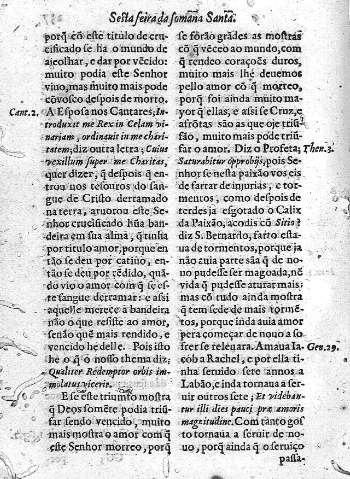 Sesta feira da somana Santa.
porq̃ cõ este titulo de cru-
cificado se ha o mundo de
ajeolhar, e dar por vẽcido:
muito podia este Senhor
vivo, mas muito mais pode
cõvosco despois de morto.
Cant. 2.
A Esposa nos Cantares, In-
troduxit me Rex in Celam vi-
nariam, ordinauit in me chari-
tatem; diz outra letra, Cuius
vexillum super me Charitas,
quer dizer, q̃ despois q̃ en-
trou nos tesouros do san-
gue de Cristo derramado
na terra, aruorou este Se-
nhor crucificado hũa ban-
deira em sua alma, q̃ tinha
por titulo amor, porque en-
tão se deu por catiuo, en-
tão se deu por rẽdido, quã-
do vio o amor com q̃ se es-
te sangue derramar: e assi
aquelle merece a bandeira
o que resiste ao amor,
senão quẽ mais rendido, e
vencido he delle. Pois isto
he o q̃ o nosso thema diz;
Qualiter Redemptor orbis im-
molatus vicerit.
E se este triumfo mostra
q̃ Deos somẽte podia triũ-
far sendo vencido, muito
mais mostra o amor com q̃
este Senhor morreo, porq̃
se forão grãdes as mostras
cõ q̃ vẽceo ao mundo, com
q̃ rendeo coraçoẽs duros,
muito mais lhe deuemos
pello amor cõ q̃ morreo,
porq̃ foi ainda muito ma-
yor q̃ ellas, e assi se Cruz, e
afrõtas são as que oje triũ-
fão, muito mais pode triũ-
far o amor. Diz o Profeta;
Thren. 3.
Saturabitur opprobrijs, pois Se-
nhor se nesta paixão vos eis
de fartar de injurias, e tor-
mentos, como despois de
terdes ja esgotado o Calix
da Paixão, acodis cõ Sitio?
diz S. Bernardo, farto esta-
ua de tormentos, porque ja
não auia parte sãa q̃ de no-
uo pudesse ser magoada, nẽ
vida q̃ pudesse aturar mais:
mas cõ tudo ainda mostra
q̃ tem sede de mais tormẽ-
tos, porque inda auia amor
pera começar de nouo a so-
frer se releuara. Amaua Ia-
Gen. 29.
cob a Rachel, e por ella ti-
nha seruido sete annos a
Labão, e inda tornaua a ser-
uir outros sete; Et videban-
tur illi dies pauci præ amoris
magnitudine. Com tanto gos-
to tornaua a seruir de no-
uo, porq̃ ainda q̃ o seruiço
passa-